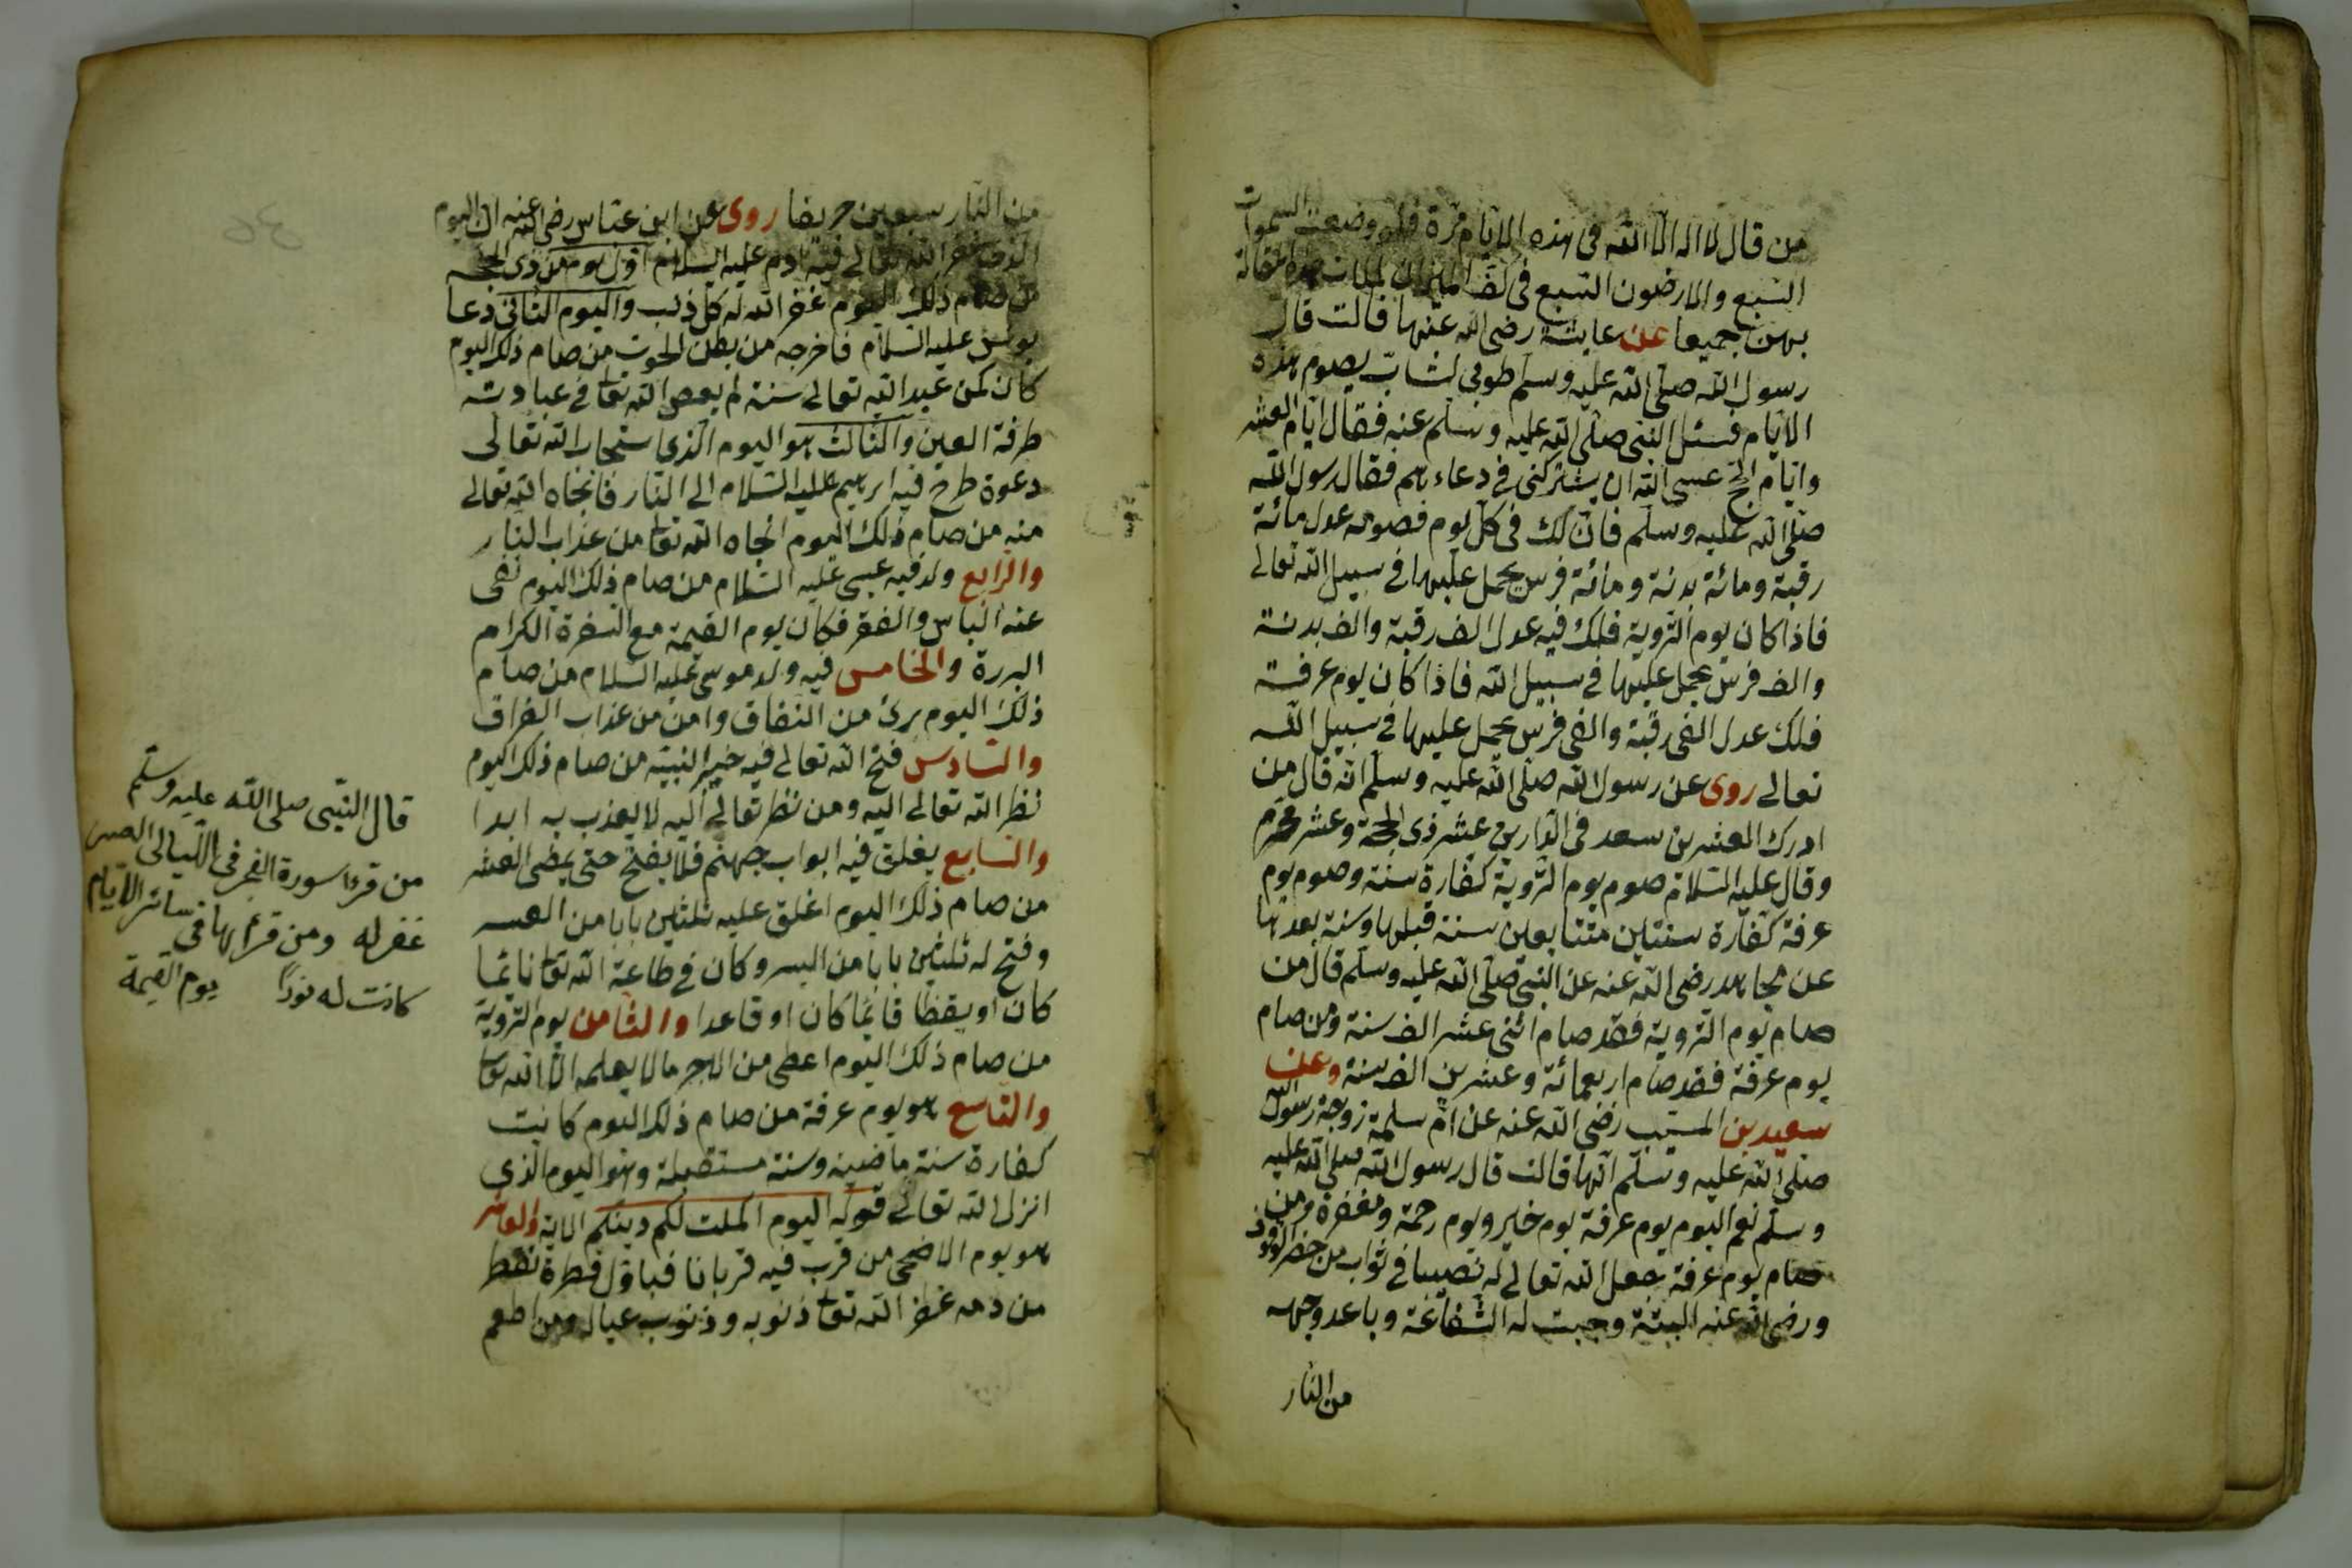 من قال لا اله الا الله فى هذه الايام مرة فلو وضعت السموات
السبع والارضون السبع فى كفة الميزان لمالت
بهن جميعا عن عايشة رضى الله عنها قالت قال
رسول الله صلى الله عليه وسلم طوبى لشاب يصوم هذه
الايام فسئل النبى صلى الله عليه وسلم عنه فقال ايام العشر
وايام الحج عسى الله ان يشتركنى فى دعاءهم فقال رسول الله
صلى الله عليه وسلم فان لك فى كل يوم فصومه عدل مائة
رقبة ومائة بدنة ومائة فرس يحمل عليها فى سبيل الله تعالى
فاذا كان يوم التروية فلك فيه عدل الف رقبة والف بدنة
والف فرس يحمل عليها فى سبيل الله فاذا كان يوم عرفة
فلك عدل الفى رقبة والفى فرس يحمل عليها فى سبيل الله
تعالى روى عن رسول الله صلى الله عليه وسلم انه قال من
ادرك العشرين سعد فى الدارين عشر ذى الحجة وعشر محرم
وقال عليه السلام صوم يوم التروية كفارة سنة وصوم يوم
عرفة كفارة سنتين متتابعين سنة قبلها وسنة بعدها
عن مجاهد رضى الله عنه عن النبى صلى الله عليه وسلم قال من
صام يوم التروية فقد صام اثنى عشر الف سنة ومن صام
يوم عرفة فقد صام اربعمائة وعشرين الف سنة وعن
سعيد بن المسيب رضى الله عنه عن ام سلمة زوجة رسول الله
صلى الله عليه وسلم انها قالت قال رسول الله صلى الله عليه
وسلم نعم اليوم يوم عرفة يوم خير ويوم رحمة ومغفرة ومن
صام يوم عرفة جعل الله تعالى له نصيبا فى ثواب من حضر الوقوف
ورضى الله عنه البتة وجبت له الشفاعة وباعد وجهه
من النار
من النار سبعين خريفا روى عن ابن عباس رضى الله عنه ان اليوم
الذى غفر الله تعالى فيه ادم عليه السلام اول يوم من ذى الحجه
من صام ذلك اليوم غفر الله له كل ذنب واليوم الثانى دعا
يونس عليه السلام فاخرجه من بطن الحوت من صام ذلك اليوم
كان كمن عبد الله تعالى سنة لم يعص الله تعا فى عبادته
طرفة العين والثالث هو اليوم الذى استجار الله تعالى
دعوة طرح فيه ابرهيم عليه السلام الى النار فانجاه الله تعالى
منه من صام ذلك اليوم انجاه الله تعا من عذاب النار
والرابع ولد فيه عيسى عليه السلام من صام ذلك اليوم نفى
عنه الباس والفقر فكان يوم القيمة مع السفرة الكرام
البررة والخامس فيه ولد موسى عليه السلام من صام
ذلك اليوم برئ من النفاق وامن من عذاب الفراق
والسادس فتح الله تعالى فيه خير النبيه من صام ذلك اليوم
نظر الله تعالى اليه ومن نظر تعالى اليه لا يعذب به ابدا
والسابع يغلق فيه ابواب جهنم فلا يفتح حتى يمضى العشر
من صام ذلك اليوم اغلق عليه ثلثين بابا من العسر
وفتح له ثلثين بابا من اليسر وكان فى طاعة الله تعا نائما
كان او يقظا قائما كان او قاعدا والثامن يوم التروية
من صام ذلك اليوم اعطى من الاجر مالا يعلمه الا الله تعا
والتاسع هو يوم عرفة من صام ذلك اليوم كانت
كفارة سنة ماضية وسنة مستقبلة وهو اليوم الذى
انزل الله تعالى قوله اليوم اكملت لكم دينكم الاية والعاشر
هو يوم الاضحى من قرب فيه قربانا فباول قطرة نقط
من دمه غفر الله تعا ذنوبه وذنوب عياله ومن اطعم
قال النبى صلى الله عليه وسلم
من قرء سورة الفجر فى الليالى العشر
غفر له ومن قرأ بها فى سائر الايام
كانت له نورا يوم القيمة